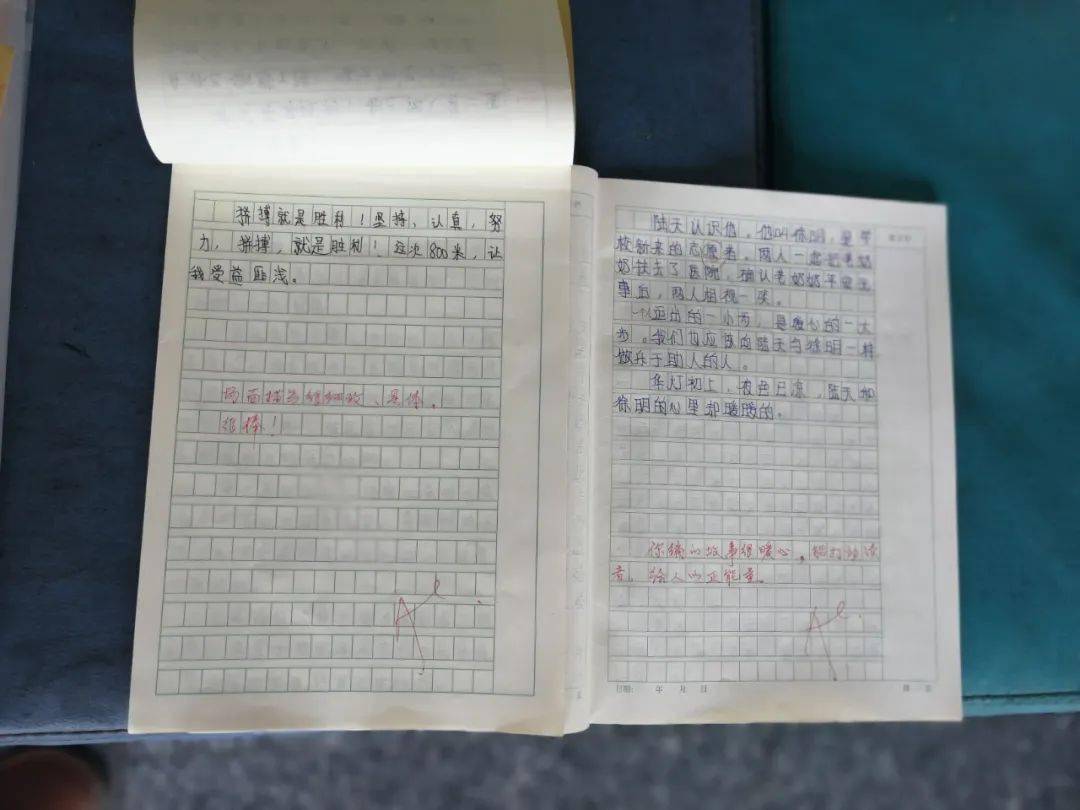 拼搏就是胜利！坚持，认真，努
力，拼搏，就是胜利！这次800米，让
我受益匪浅。
场面描写很细致、具体。
很棒！
陆天认识他。他叫徐明，是学
校新来的志愿者。两人一起把老奶
奶扶去了医院，确认老奶奶平安无
事后，两人相视一笑。
迈出的一小步，是暖心的一大
步。我们也应该向陆天与徐明一样
做乐于助人的人。
华灯初上，夜色已凉，陆天和
徐明的心里却暖暖的。
你编的故事很暖心，能打动读
者，给人以正能量。
日期： 年 月 日
第 页